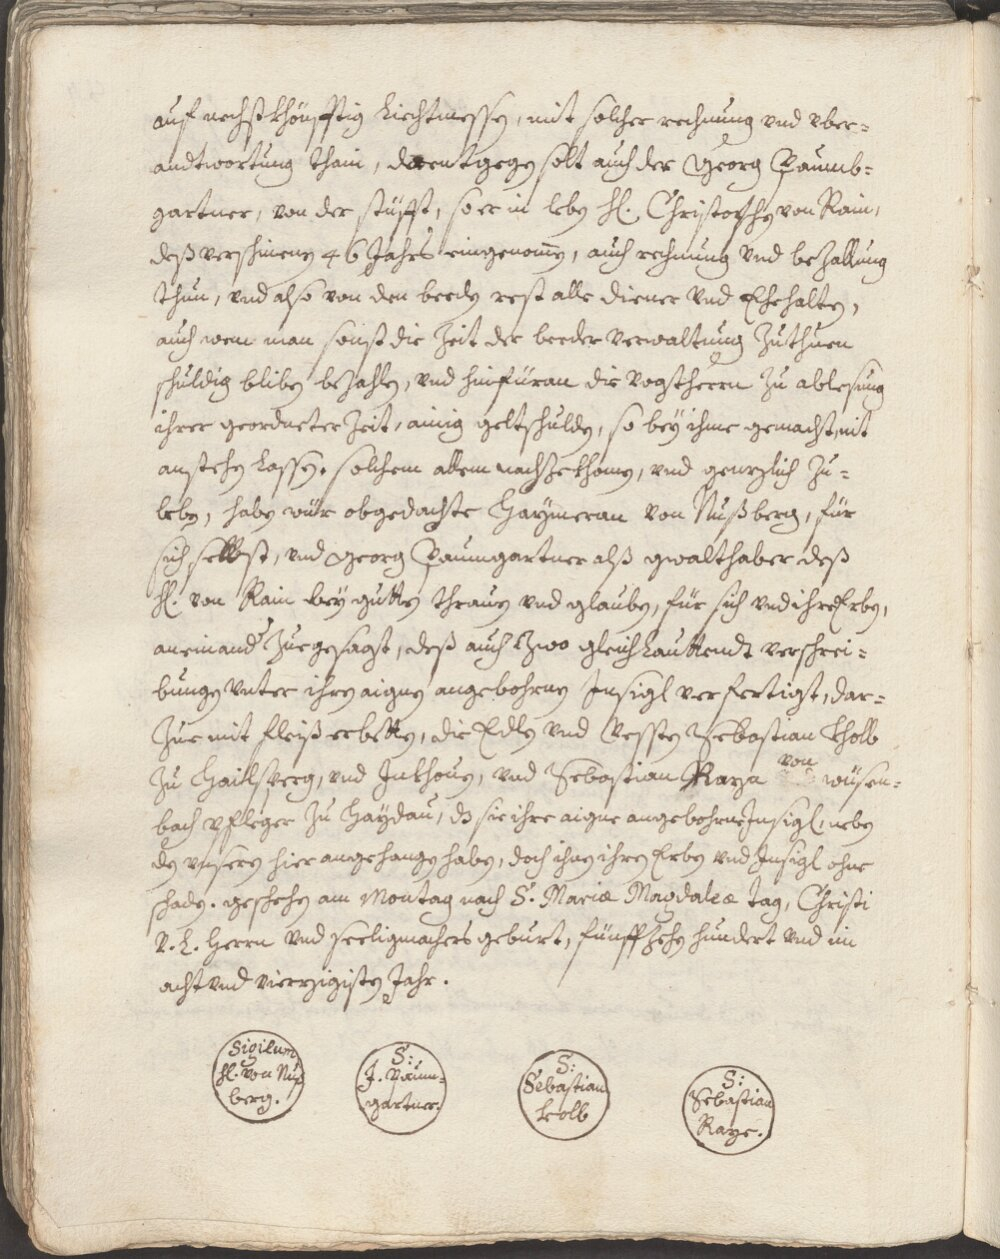 auf nechstkhönfftig Liechtmessen, mit solcher rechnung vnd vber=
andtwortung thain, darentgegen solt auch der Georg Paumb=
gartner, von der stüfft, so er in leben H. Christophen von Rain,
deß verschinenen 46 Jahrs eingenomen, auch rechnung vnd bezallung
thun, vnd also von den beeden rest alle diener vnd Ehehalten,
auch wem man sonst die Zeit der beeder verwaltung zuthuen
schuldig bliben bezahlen, vnd hinfüran die vogtherrn zu ablesung
ihrer geordneter Zeit, ainig geltschulden, so bey ihme gemacht, nit
anstehen lassen. solchem allem nachzekhomen, vnd gentzlich zu=
leben, haben wür obgedachte Haymeran von Nußberg, für
sich selbst, vnd Georg Paumgartner alß gwalthaber deß
H. von Rain bey gutten thrauen vnd glauben, für sich vnd ihre Erben,
aneinand' zuegesagt, deß auch zwo gleich Lauttendt verschrei=
bungen vnter ihren aignen angebohrnen Insigl verfertigt, dar=
zue mit fleiß erbetten, die Edlen vnd Vessten Sebastian Kholb
zu Hailsperg, vnd Inkhouen, vnd Sebastian Raya von wüsen=
bach Pfleger zu Haydau, dz sie ihre aigne angebohrne Insigl, neben
den vnseren hier angehangen haben, doch ihnen ihren Erben vnd Insigl ohne
schaden. geschehen am Montag nach S. Mariæ Magdaleæ tag, Christi
V. L. Herrn vnd seeligmachers geburt, fünffzehen hundert vnd im
acht vnd vierzigisten Jahr.
Sigilum
H. von Nuß
berg.
S:
J. Paum=
gartner.
S:
Sebastian
kolb
S:
Sebastian
Raye.